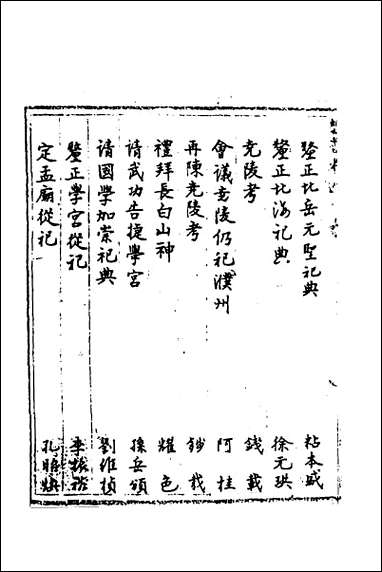 釐正北岳元聖祀典 粘本盛
釐正北海祀典 徐元珙
堯陵考 錢載
會議堯陵仍祀濮州 阿桂
再陳堯陵考 錢載
禮拜長白山神 耀色
請武功告捷學宮 孫岳頒
請國學加崇祀典 劉維禎
釐正學宮從祀 李振裕
定孟廟從祀 孔昭煥